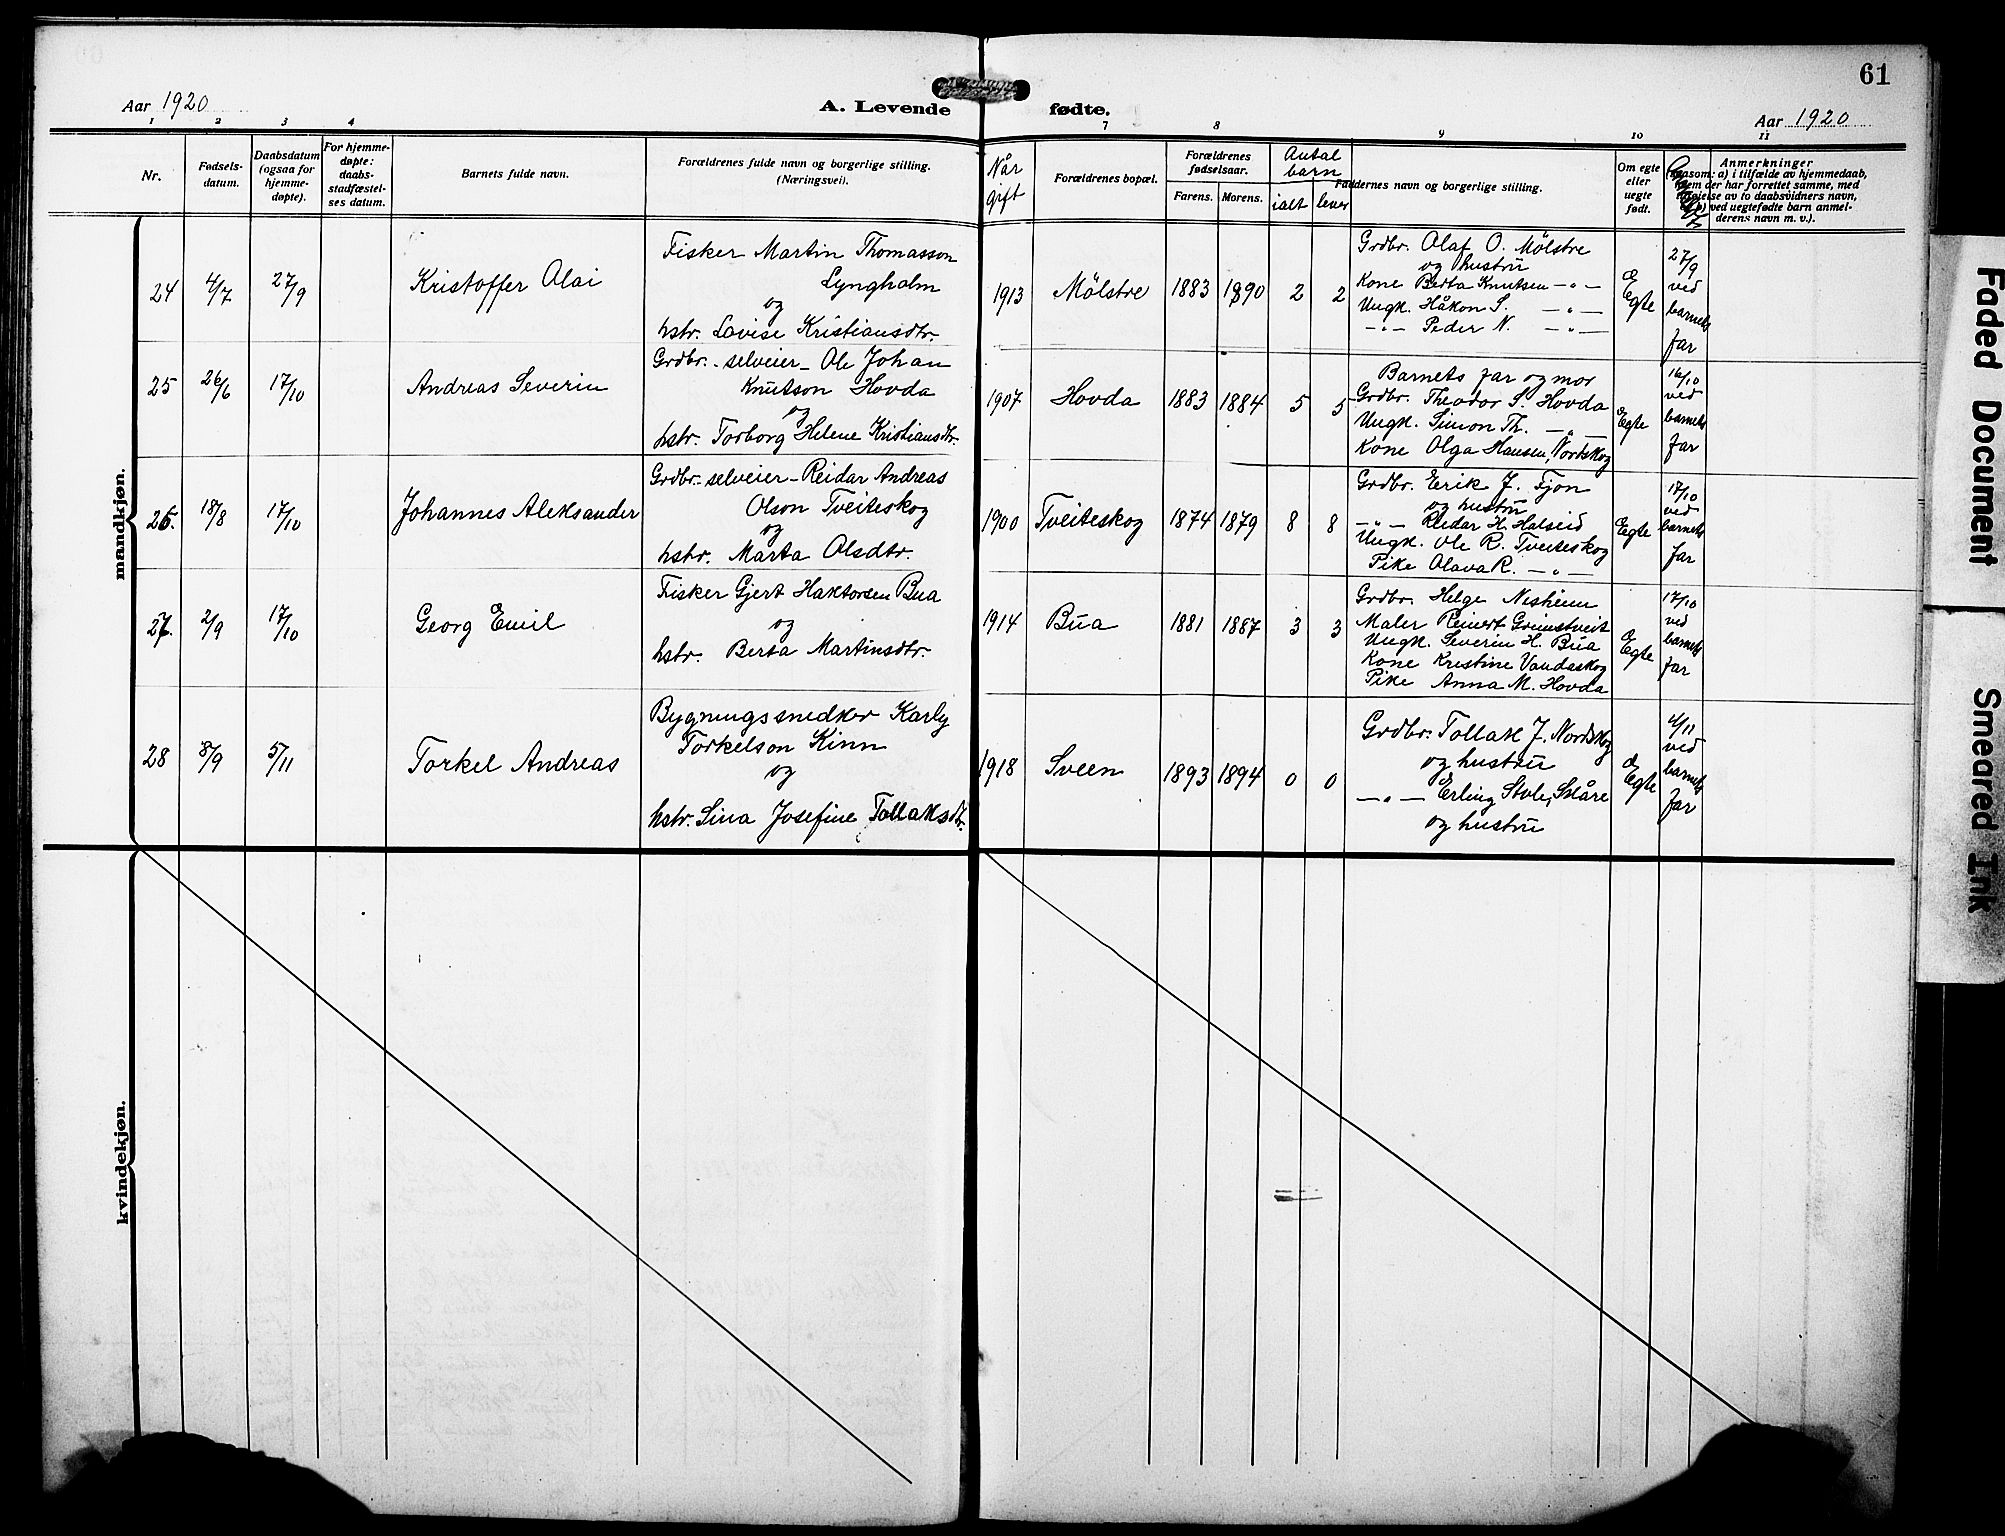 61
Aar 1920
A. Levende fødte.
Aar 1920
1 2 3 4 7 8 9 10 11
Nr.
Fødsels-
datum.
Daabsdatum
(ogsaa for
hjemme-
døpte).
For hjemme-
døpte:
daabs-
stadfæstel-
ses datum.
Barnets fulde navn.
Forældrenes fulde navn og borgerlige stilling.
(Næringsvei).
Når
gift
Forældrenes bopæl.
Forældrenes
fødselsaar.
Farens. Morens.
Antal
barn
ialt lever
Faddernes navn og borgerlige stilling.
Om egte
eller
uegte
født.
Anmerkninger
(saasom: a) i tilfælde av hjemmedaab,
hvem der har forrettet samme, med
tilføielse av to daabsvidners navn,
b) ved uegtefødte barn anmel-
derens navn m. v.).
mandkjøn.
24 4/7 27/9 Kristoffer Olai
Fisker Martin Thomasson
Lyngholm
og
hstr. Lovise Kristiansdtr.
1913 Mölstre 1883 1890 2 2
Grdbr. Olaf O. Mölstre
og hustru
Kone Berta Knutsen -"-
Ungk. Håkon S. -"-
-"- Peder N. -"-
Egte
27/9
ved
barnets
far
25 26/6 17/10 Andreas Severin
Grdbr.-selveier- Ole Johan
Knutson Hovda
og
hstr. Torborg Helene Kristiansdtr.
1907 Hovda 1883 1884 5 5
Barnets far og mor
Grdbr. Theodor S. Hovda
Ungk. Simon Th. -"-
Kone Olga Hansen, Nordskog
Egte
16/10
ved
barnets
far
26. 18/8 17/10 Johannes Aleksander
Grdbr.-selveier- Reidar Andreas
Olson Tveiteskog
og
hstr. Marta Olsdtr.
1900 Tveiteskog 1874 1879 8 8
Grdbr. Erik J. Fjon
og hustru
-"- Reidar H. Halseid
Ungk. Ole R. Tveiteskog
Pike Olava R. -"-
Egte
17/10
ved
barnets
far
27. 2/9 17/10 Georg Emil
Fisker Gjert Haktorsen Bua
og
hstr. Berta Martinsdtr.
1914 Bua 1881 1887 3 3
Grdbr. Helge Nesheim
Maler Reinert Grimstveit
Ungk. Severin H. Bua
Kone Kristine Vandaskog
Pike Anna M. Hovda
Egte
17/10
ved
barnets
far
28 8/9 5/11 Torkel Andreas
Bygningssnedker Karly
Torkelson Kinn
og
hstr. Sina Josefine Tollaksdtr.
1918 Sveen 1893 1894 0 0
Grdbr. Tollak J. Nordskog
og hustru
-"- Erling Stole, Skåre
og hustru
Egte
4/11
ved
barnets
far
kvindekjøn.
Faded Document
Smeared Ink